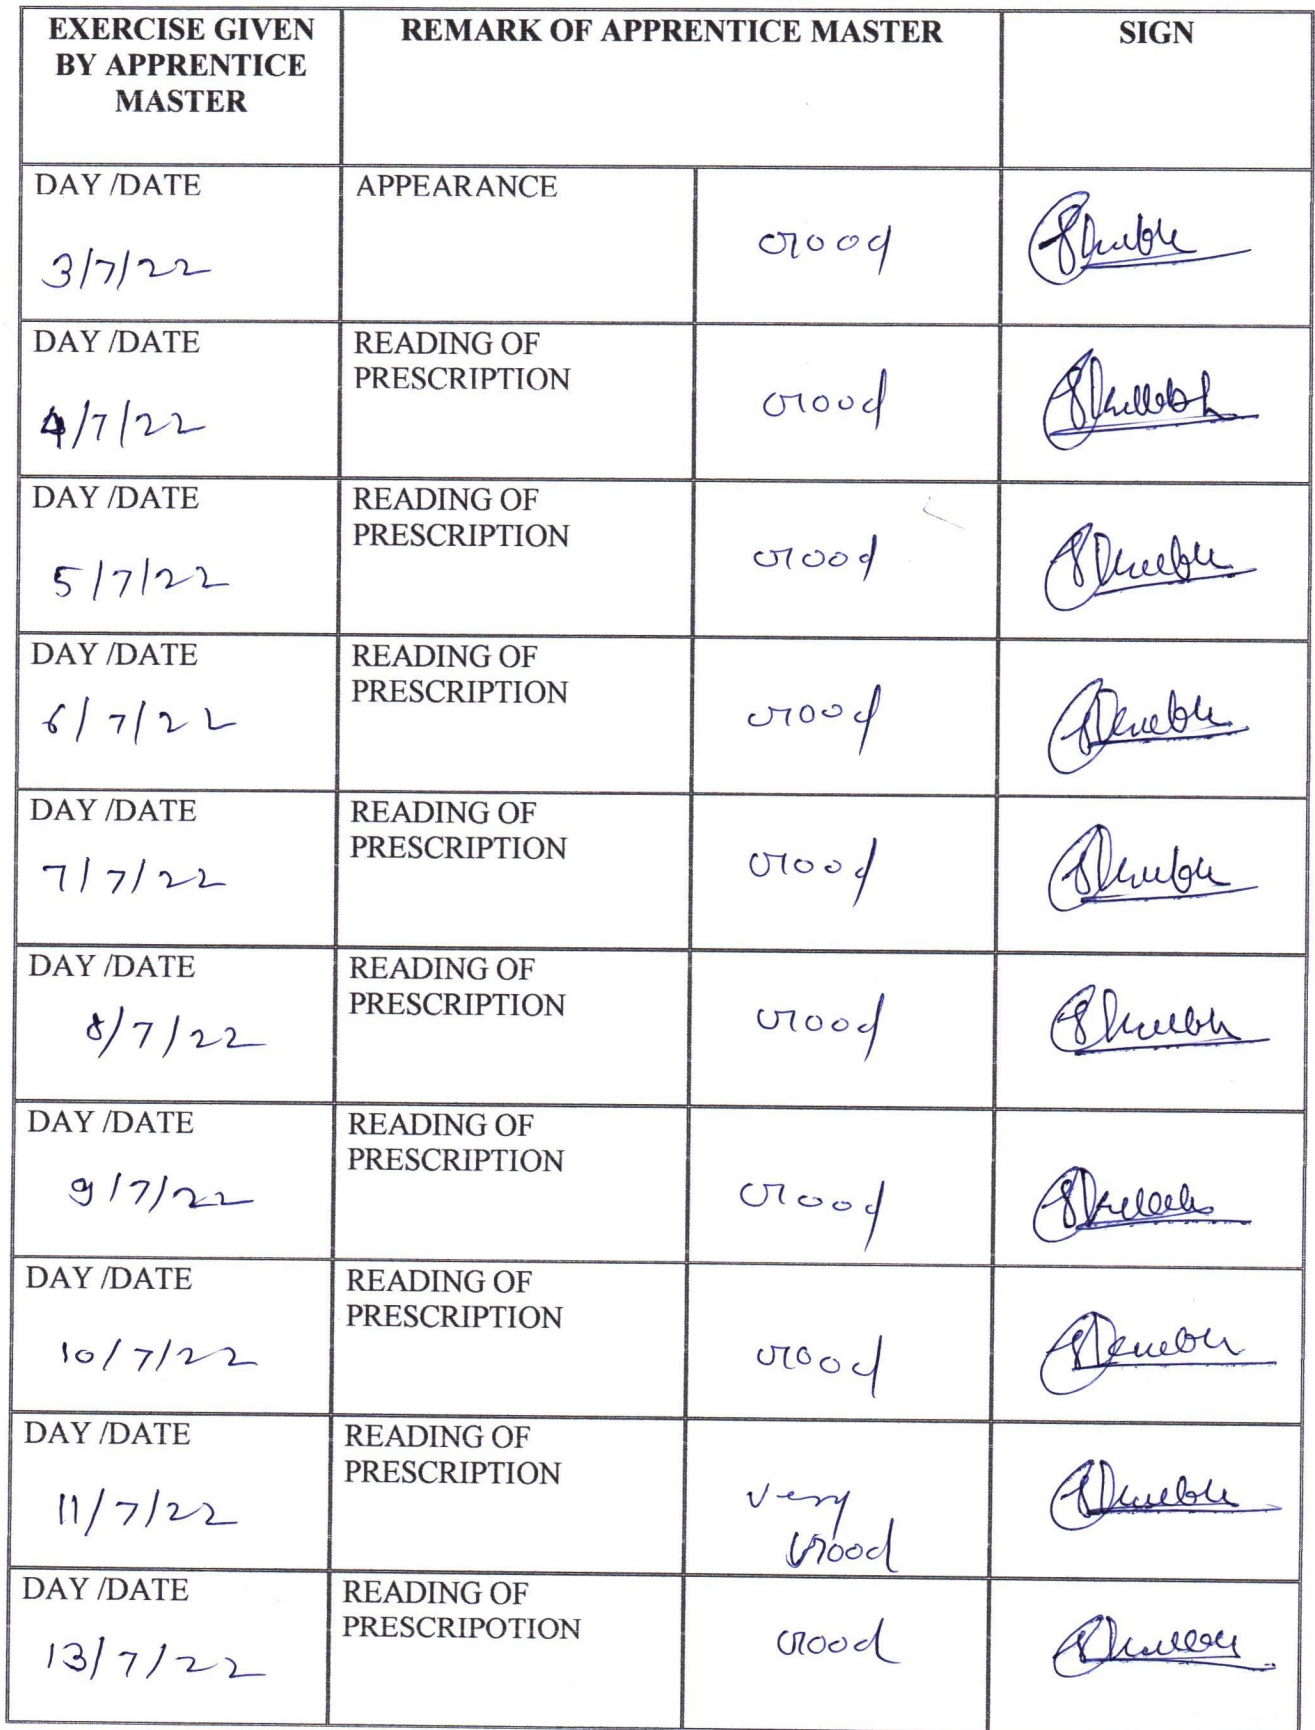 EXERCISE GIVEN
BY APPRENTICE
MASTER
REMARK OF APPRENTICE MASTER
SIGN
DAY /DATE
3/7/22
APPEARANCE
Good
DAY /DATE
4/7/22
READING OF
PRESCRIPTION
Good
DAY /DATE
5/7/22
READING OF
PRESCRIPTION
Good
DAY /DATE
6/7/22
READING OF
PRESCRIPTION
Good
DAY /DATE
7/7/22
READING OF
PRESCRIPTION
Good
DAY /DATE
8/7/22
READING OF
PRESCRIPTION
Good
DAY /DATE
9/7/22
READING OF
PRESCRIPTION
Good
DAY /DATE
10/7/22
READING OF
PRESCRIPTION
Good
DAY /DATE
11/7/22
READING OF
PRESCRIPTION
very
Good
DAY /DATE
13/7/22
READING OF
PRESCRIPOTION
Good